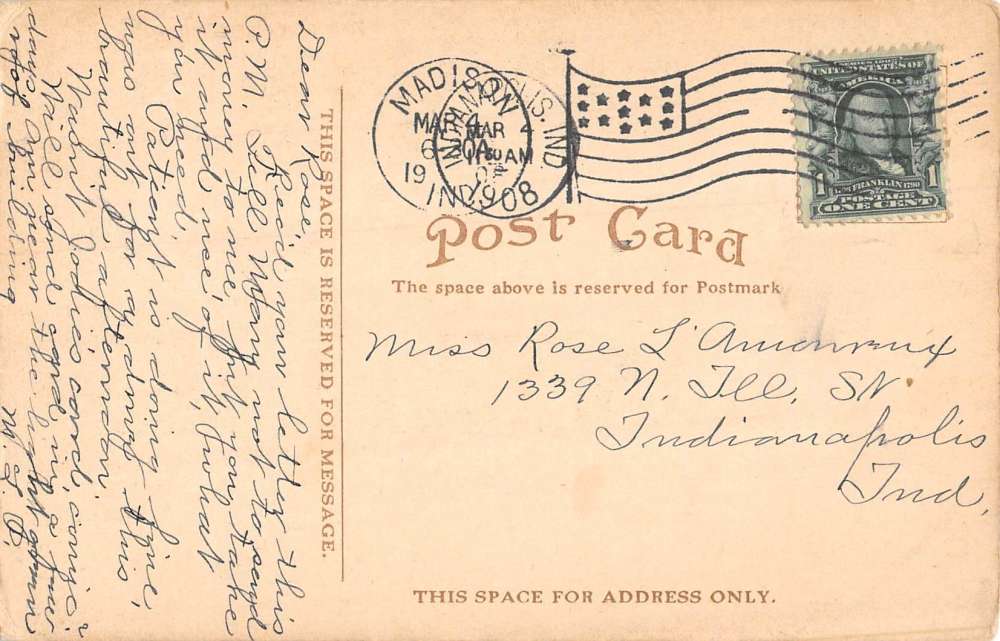 Dear Rose,
Rec'd your letter this
P.M. Tell Mary not to send
money to me but you take
it and use of it, what
you need.
Patient is doing fine,
was out for a drive this
beautiful afternoon.
Wasn't Jodie's card, comic?
Will send card in a few
days. Am near the last
of building
THIS SPACE IS RESERVED FOR MESSAGE.
MADISON
MAR 4
IND.
INDIANAPOLIS. IND
MAR 4
1908
SERIES 1902
UNITED STATES OF
AMERICA
FRANKLIN 1790
1 1
POSTAGE
ONE CENT
Post Card
The space above is reserved for Postmark
Miss Rose L'Amoureux
1339 N. Ill. St.
Indianapolis
Ind.
THIS SPACE FOR ADDRESS ONLY.